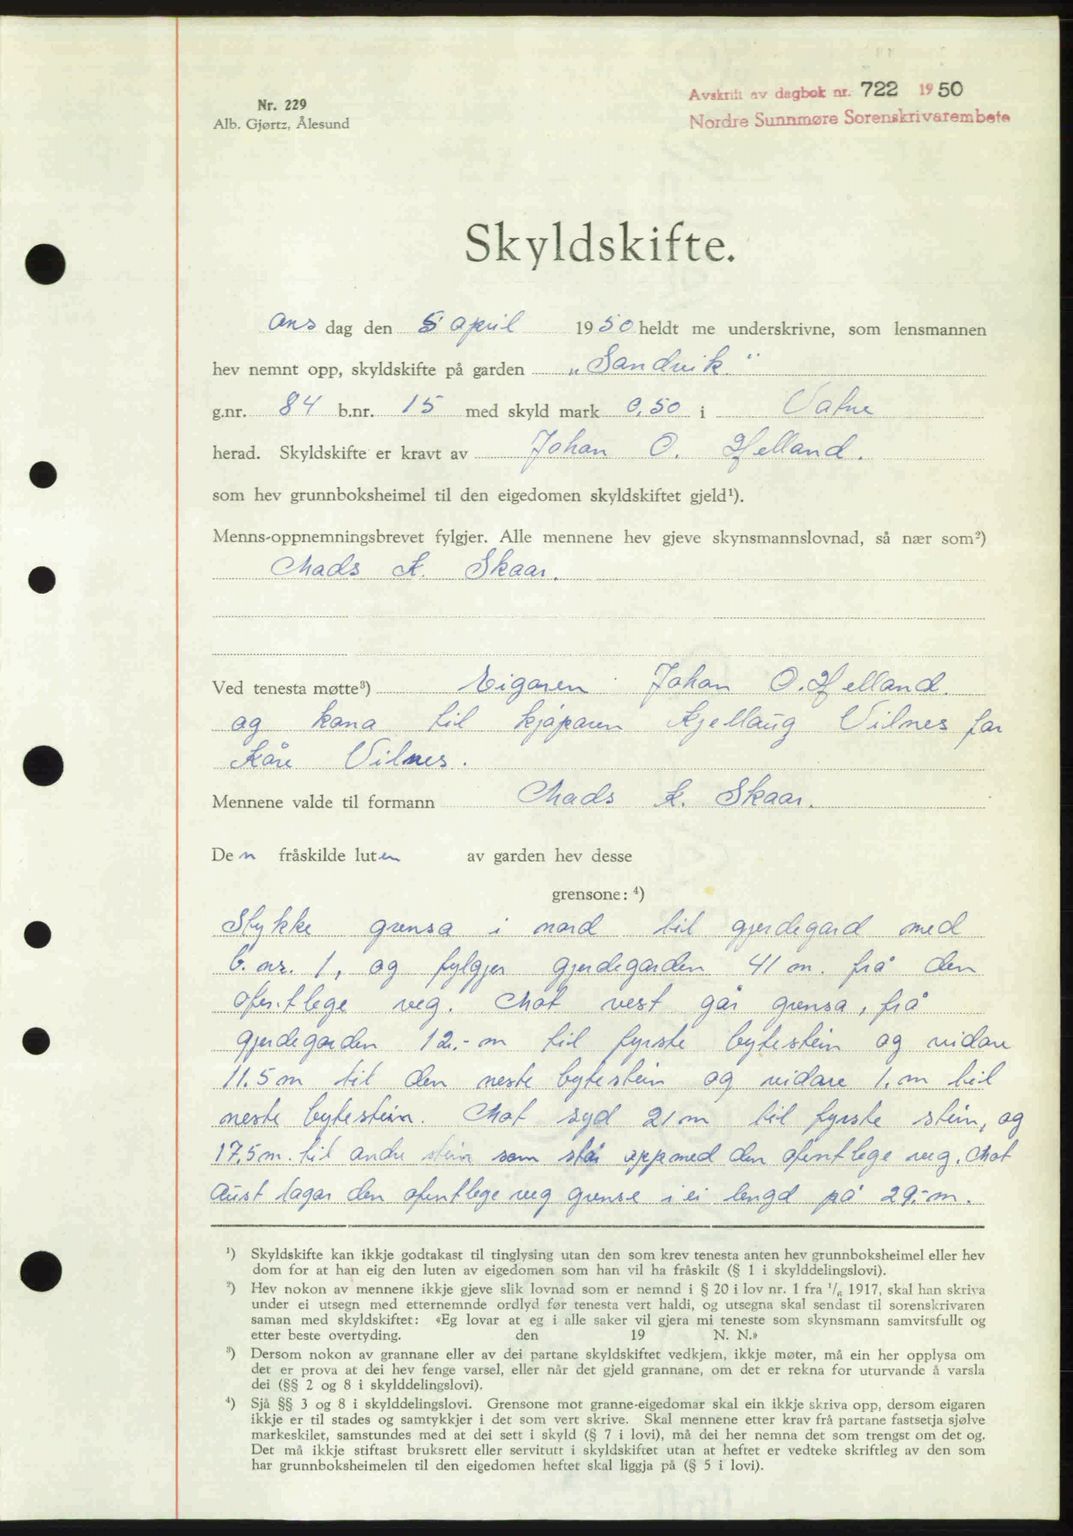 Nr. 229
Alb. Gjørtz, Ålesund
Avskrift av dagbok nr. 722 1950
Nordre Sunnmøre Sorenskrivarembete
Skyldskifte.
Ons dag den 5 april 1950 heldt me underskrivne, som lensmannen
hev nemnt opp, skyldskifte på garden „Sandvik"
g.nr. 84 b.nr. 15 med skyld mark 0,50 i Vatne
herad. Skyldskifte er kravt av Johan O. Helland.
som hev grunnboksheimel til den eigedomen skyldskiftet gjeld¹).
Menns-oppnemningsbrevet fylgjer. Alle mennene hev gjeve skynsmannslovnad, så nær som²)
Mads K. Skaar.
Ved tenesta møtte³) Eigaren Johan O. Helland.
og kona til kjøparen Kjellaug Vilnes for
Kåre Vilnes.
Mennene valde til formann Mads K. Skaar.
Den fråskilde luten av garden hev desse
grensone: ⁴)
Stykke grensa i nord til gjerdegard med
b.nr. 1, og fylgjer gjerdegarden 41 m. frå den
ofentlege veg. Mot vest går grensa, frå
gjerdegarden 12.- m til fyrste bytestein og vidare
11.5 m til den neste bytestein og vidare 1. m til
neste bytestein. Mot syd 21 m til fyrste stein, og
17,5 m. til andre stein som står opp med den ofentlege veg. Mot
Aust lagar den ofentlege veg grense i ei lengd på 29.- m.
¹) Skyldskifte kan ikkje godtakast til tinglysing utan den som krev tenesta anten hev grunnboksheimel eller hev
dom for at han eig den luten av eigedomen som han vil ha fråskilt (§ 1 i skylddelingslovi).
²) Hev nokon av mennene ikkje gjeve slik lovnad som er nemnd i § 20 i lov nr. 1 fra ¹/₆ 1917, skal han skriva
under ei utsegn med etternemnde ordlyd før tenesta vert haldi, og utsegna skal sendast til sorenskrivaren
saman med skyldskiftet: «Eg lovar at eg i alle saker vil gjera mi teneste som skynsmann samvitsfullt og
etter beste overtyding. den 19 N. N.»
³) Dersom nokon av grannane eller av dei partane skyldskiftet vedkjem, ikkje møter, må ein her opplysa om
det er prova at dei hev fenge varsel, eller når det gjeld grannane, om det er rekna for uturvande å varsla
dei (§§ 2 og 8 i skylddelingslovi).
⁴) Sjå §§ 3 og 8 i skylddelingslovi. Grensone mot granne-eigedomar skal ein ikkje skriva opp, dersom eigaren
ikkje er til stades og samtykkjer i det som vert skrive. Skal mennene etter krav frå partane fastsetja sjølve
markeskilet, samstundes med at dei sett i skyld (§ 7 i lovi), må dei her nemna det som trengst om det og.
Det må ikkje stiftast bruksrett eller servitutt i skyldskiftet utan at heftet er vedteke skriftleg av den som
har grunnboksheimelen til den eigedomen heftet skal liggja på (§ 5 i lovi).